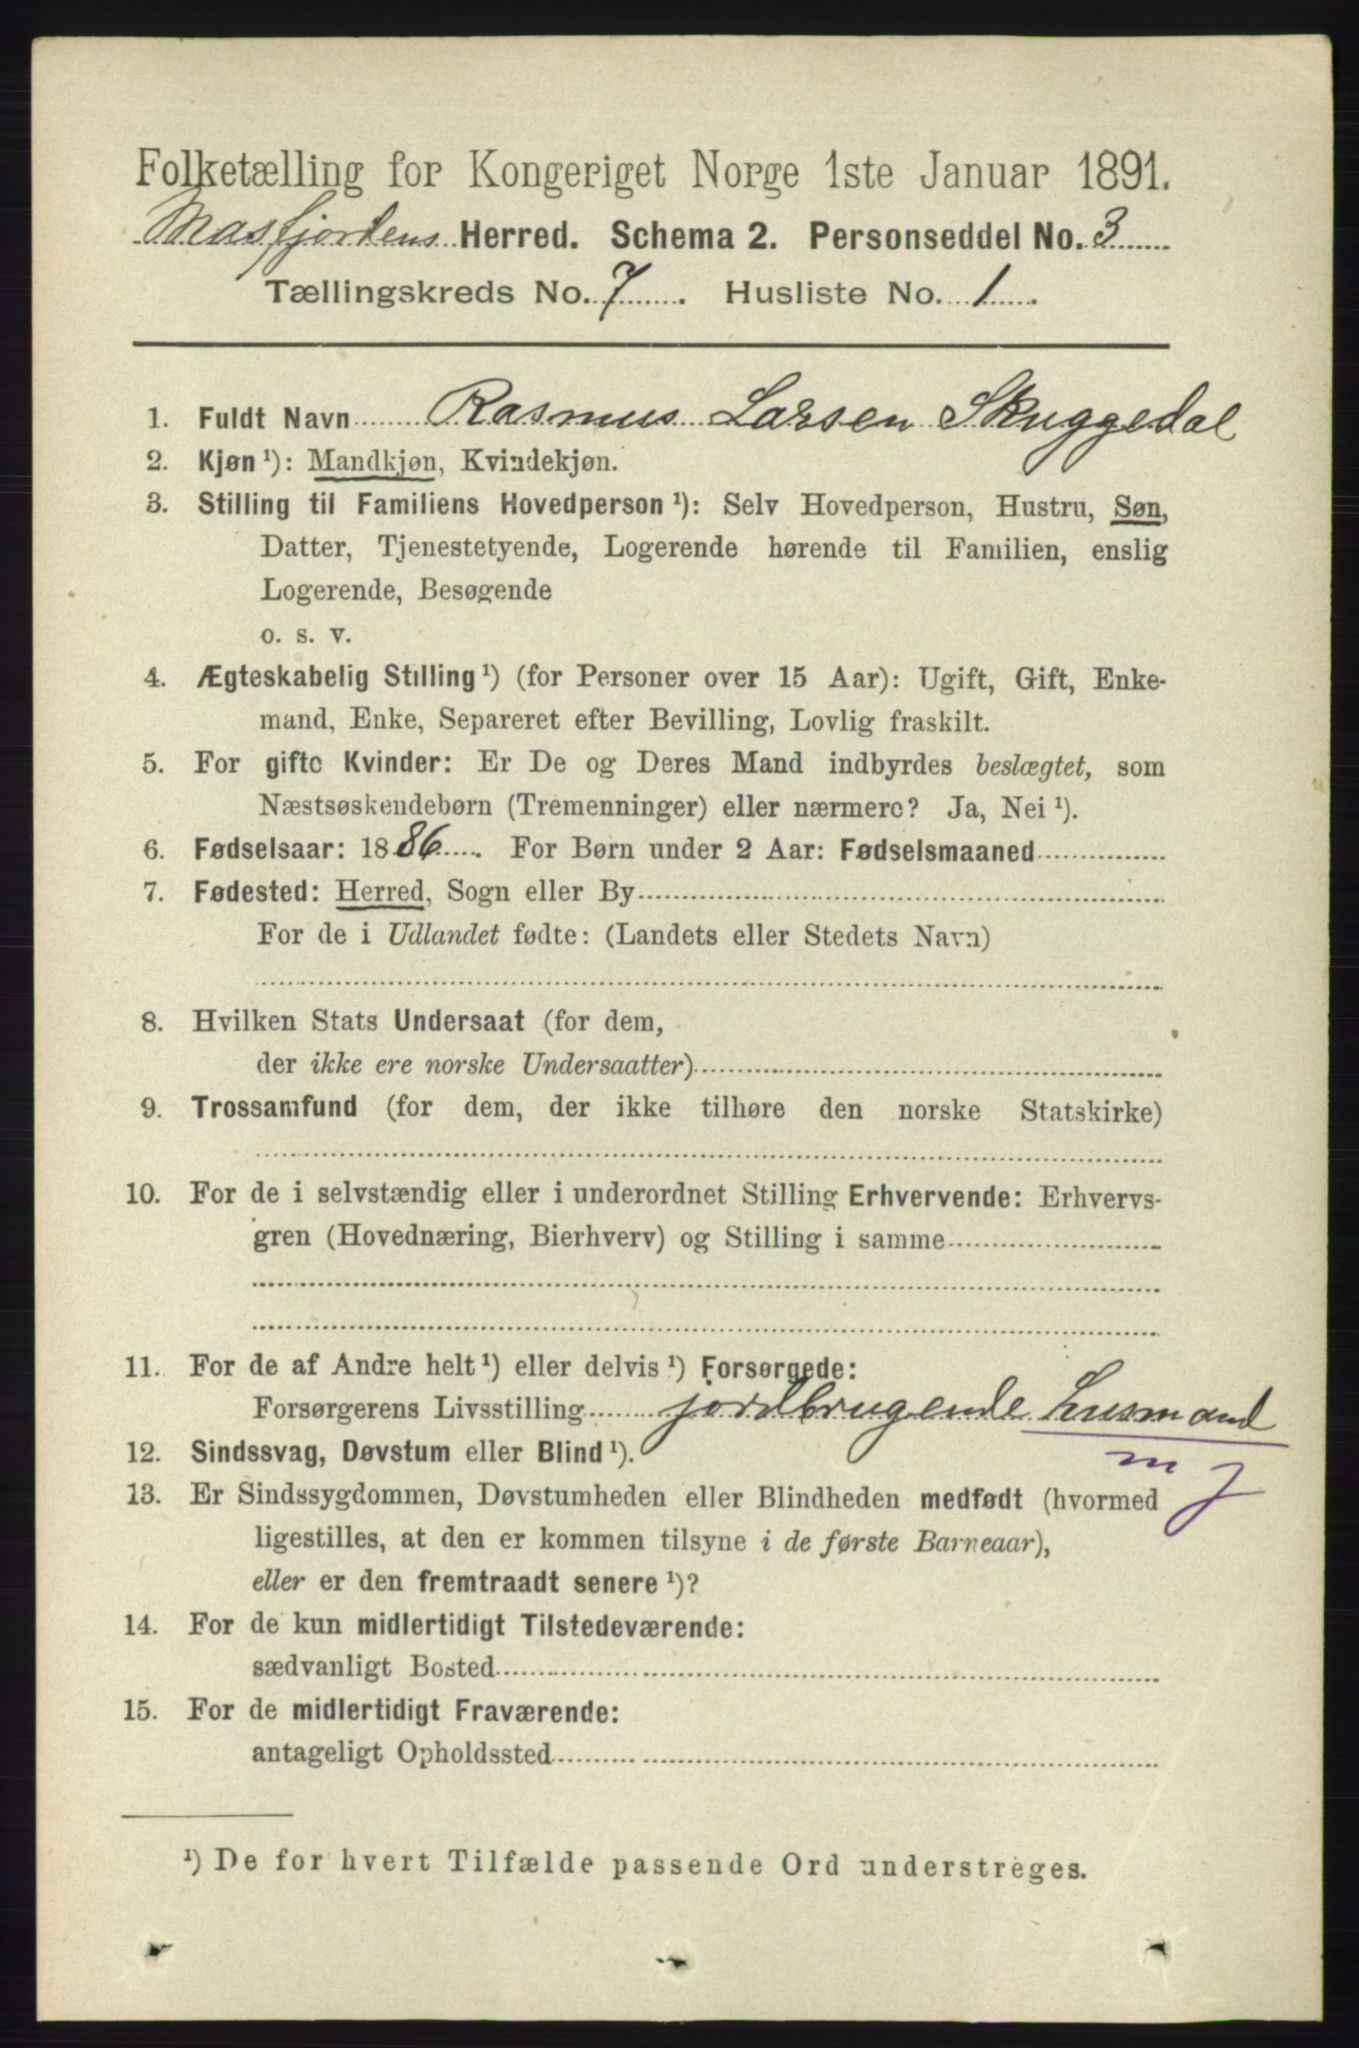 Folketælling for Kongeriget Norge 1ste Januar 1891.
Masfjordens Herred. Schema 2. Personseddel No. 3
Tællingskreds No. 7. Husliste No. 1.
1. Fuldt Navn Rasmus Larsen Skuggedal
2. Kjøn ¹): Mandkjøn, Kvindekjøn.
3. Stilling til Familiens Hovedperson ¹): Selv Hovedperson, Hustru, Søn,
Datter, Tjenestetyende, Logerende hørende til Familien, enslig
Logerende, Besøgende
o. s. v.
4. Ægteskabelig Stilling ¹) (for Personer over 15 Aar): Ugift, Gift, Enke-
mand, Enke, Separeret efter Bevilling, Lovlig fraskilt.
5. For gifte Kvinder: Er De og Deres Mand indbyrdes beslægtet, som
Næstsøskendebørn (Tremenninger) eller nærmere? Ja, Nei ¹).
6. Fødselsaar: 1886. For Børn under 2 Aar: Fødselsmaaned
7. Fødested: Herred, Sogn eller By
For de i Udlandet fødte: (Landets eller Stedets Navn)
8. Hvilken Stats Undersaat (for dem,
der ikke ere norske Undersaatter)
9. Trossamfund (for dem, der ikke tilhøre den norske Statskirke)
10. For de i selvstændig eller i underordnet Stilling Erhvervende: Erhvervs-
gren (Hovednæring, Bierhverv) og Stilling i samme
11. For de af Andre helt ¹) eller delvis ¹) Forsørgede:
Forsørgerens Livsstilling jordbrugende Husmand
12. Sindssvag, Døvstum eller Blind ¹).
m J
13. Er Sindssygdommen, Døvstumheden eller Blindheden medfødt (hvormed
ligestilles, at den er kommen tilsyne i de første Barneaar),
eller er den fremtraadt senere ¹)?
14. For de kun midlertidigt Tilstedeværende:
sædvanligt Bosted
15. For de midlertidigt Fraværende:
antageligt Opholdssted
¹) De for hvert Tilfælde passende Ord understreges.